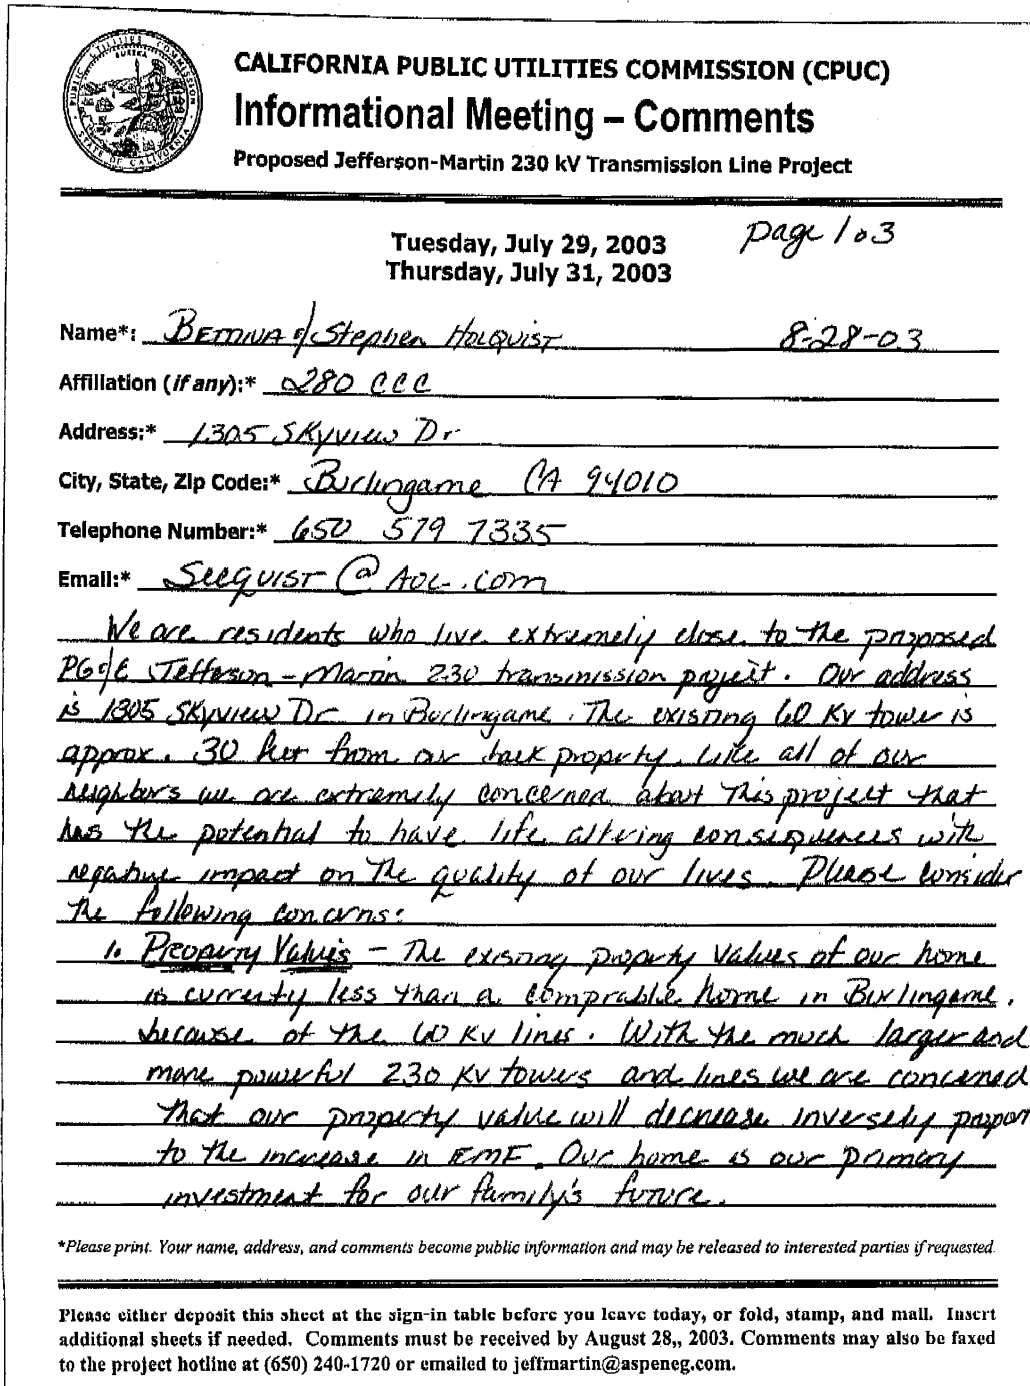 PUBLIC UTILITIES COMMISSION
EUREKA
STATE OF CALIFORNIA
CALIFORNIA PUBLIC UTILITIES COMMISSION (CPUC)
Informational Meeting – Comments
Proposed Jefferson-Martin 230 kV Transmission Line Project
Tuesday, July 29, 2003
Thursday, July 31, 2003
page 1 o 3
Name*: Bettina & Stephen Holquist 8-28-03
Affiliation (if any):* 280 CCC
Address:* 1305 Skyview Dr
City, State, Zip Code:* Burlingame CA 94010
Telephone Number:* 650 579 7335
Email:* Seequist@AOL.com
We are residents who live extremely close to the proposed
PG&E Jefferson-Martin 230 transmission project. Our address
is 1305 Skyview Dr in Burlingame. The existing 60 Kv tower is
approx. 30 feet from our back property. Like all of our
neighbors we are extremely concerned about this project that
has the potential to have life altering consequences with
negative impact on the quality of our lives. Please consider
the following concerns:
1. Property Values – The existing property values of our home
is currently less than a comprable home in Burlingame.
because of the 60 Kv lines. With the much larger and
more powerful 230 Kv towers and lines we are concerned
that our property value will decrease inversely propor
to the increase in EMF. Our home is our primary
investment for our family's future.
*Please print. Your name, address, and comments become public information and may be released to interested parties if requested.
Please either deposit this sheet at the sign-in table before you leave today, or fold, stamp, and mail. Insert
additional sheets if needed. Comments must be received by August 28,, 2003. Comments may also be faxed
to the project hotline at (650) 240-1720 or emailed to jeffmartin@aspeneg.com.